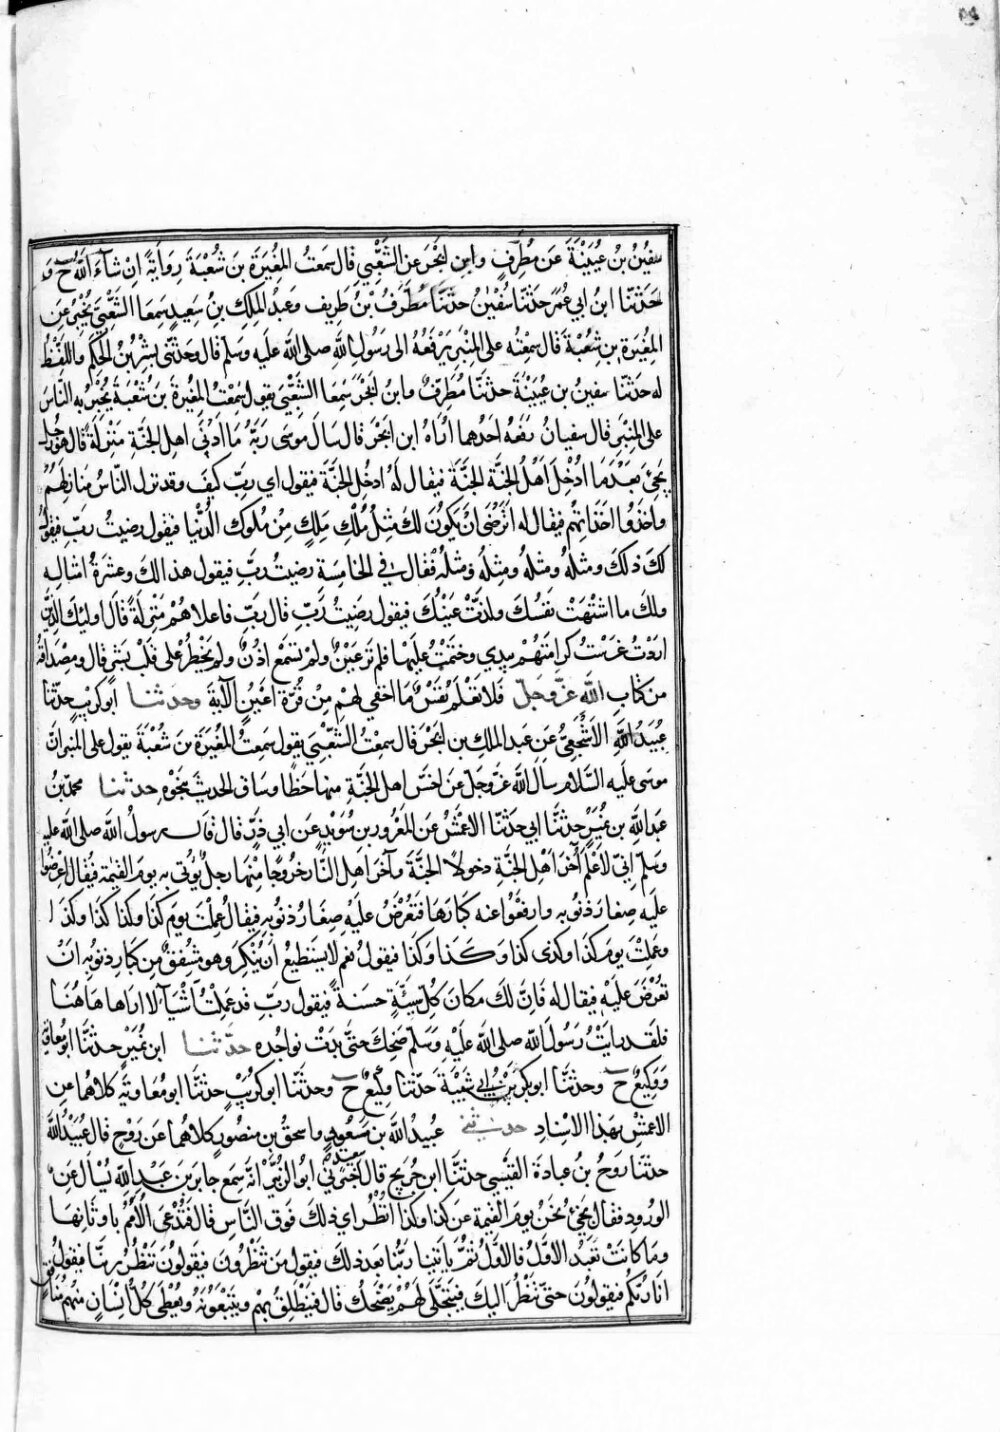 سفين بن عيينة عن مطرف وابن ابجر عن الشعبي قال سمعت المغيرة بن شعبة رواية ان شاء الله ح و
حدثنا ابن ابي عمر حدثنا سفين حدثنا مطرف بن طريف وعبد الملك بن سعيد سمعا الشعبي يخبر عن
المغيرة بن شعبة قال سمعته على المنبر يرفعه الى رسول الله صلى الله عليه وسلم قال وحدثني بشر بن الحكم واللفظ
له حدثنا سفين بن عيينة حدثنا مطرف وابن ابجر سمعا الشعبي يقول سمعت المغيرة بن شعبة يخبر به الناس
على المنبر قال سفيان رفعه احدهما اراه ابن ابجر قال سال موسى ربه ما ادنى اهل الجنة منزلة قال هو رجل
يجئ بعد ما ادخل اهل الجنة الجنة فيقال له ادخل الجنة فيقول اي رب كيف وقد نزل الناس منازلهم
واخذوا اخذاتهم فيقال له اترضى ان يكون لك مثل ملك ملك من ملوك الدنيا فيقول رضيت رب فيقول
لك ذلك ومثله ومثله ومثله ومثله فقال في الخامسة رضيت رب فيقول هذا لك وعشرة امثاله
ولك ما اشتهت نفسك ولذت عينك فيقول رضيت رب قال رب فاعلاهم منزلة قال اوليك الذين
اردت غرست كرامتهم بيدي وختمت عليها فلم تر عين ولم تسمع اذن ولم يخطر على قلب بشر قال ومصداقه
من كتاب الله عز وجل فلا تعلم نفس ما اخفي لهم من قرة اعين الآية وحدثنا ابو كريب حدثنا
عبيد الله الاشجعي عن عبد الملك بن ابجر قال سمعت الشعبي يقول سمعت المغيرة بن شعبة يقول على المنبر ان
موسى عليه السلام سال الله عز وجل عن اخس اهل الجنة منها حظا وساق الحديث بنحوه حدثنا محمد بن
عبد الله بن نمير حدثنا ابي حدثنا الاعمش عن المعرور بن سويد عن ابي ذر قال قال رسول الله صلى الله عليه
وسلم اني لاعلم آخر اهل الجنة دخولا الجنة وآخر اهل النار خروجا منها رجل يؤتى به يوم القيمة فيقال اعرضوا
عليه صغار ذنوبه وارفعوا عنه كبارها فتعرض عليه صغار ذنوبه فيقال عملت يوم كذا وكذا كذا وكذا
وعملت يوم كذا وكذى كذا وكذا وكذا فيقول نعم لا يستطيع ان ينكر وهو مشفق من كبار ذنوبه ان
تعرض عليه فيقال له فان لك مكان كل سيئة حسنة فيقول رب قد عملت اشياء لا اراها هاهنا
فلقد رايت رسول الله صلى الله عليه وسلم ضحك حتى بدت نواجذه حدثنا ابن نمير حدثنا ابو معاوية
ووكيع ح وحدثنا ابو بكر بن ابي شيبة حدثنا وكيع ح وحدثنا ابو كريب حدثنا ابو معاوية كلاهما عن
الاعمش بهذا الاسناد حدثني عبيد الله بن سعيد واسحق بن منصور كلاهما عن روح قال عبيد الله
حدثنا روح بن عبادة القيسي حدثنا ابن جريج قال اخبرني ابو الزبير انه سمع جابر بن عبد الله يسال عن
الورود فقال يجئ نحن يوم القيمة عن كذا وكذا انظر اي ذلك فوق الناس قال فتدعى الامم باوثانها
وما كانت تعبد الاول فالاول ثم ياتينا ربنا بعد ذلك فيقول من تنظرون فيقولون ننظر ربنا فيقول
انا ربكم فيقولون حتى ننظر اليك فيتجلى لهم يضحك قال فينطلق بهم ويتبعونه ويعطى كل انسان منهم منافق